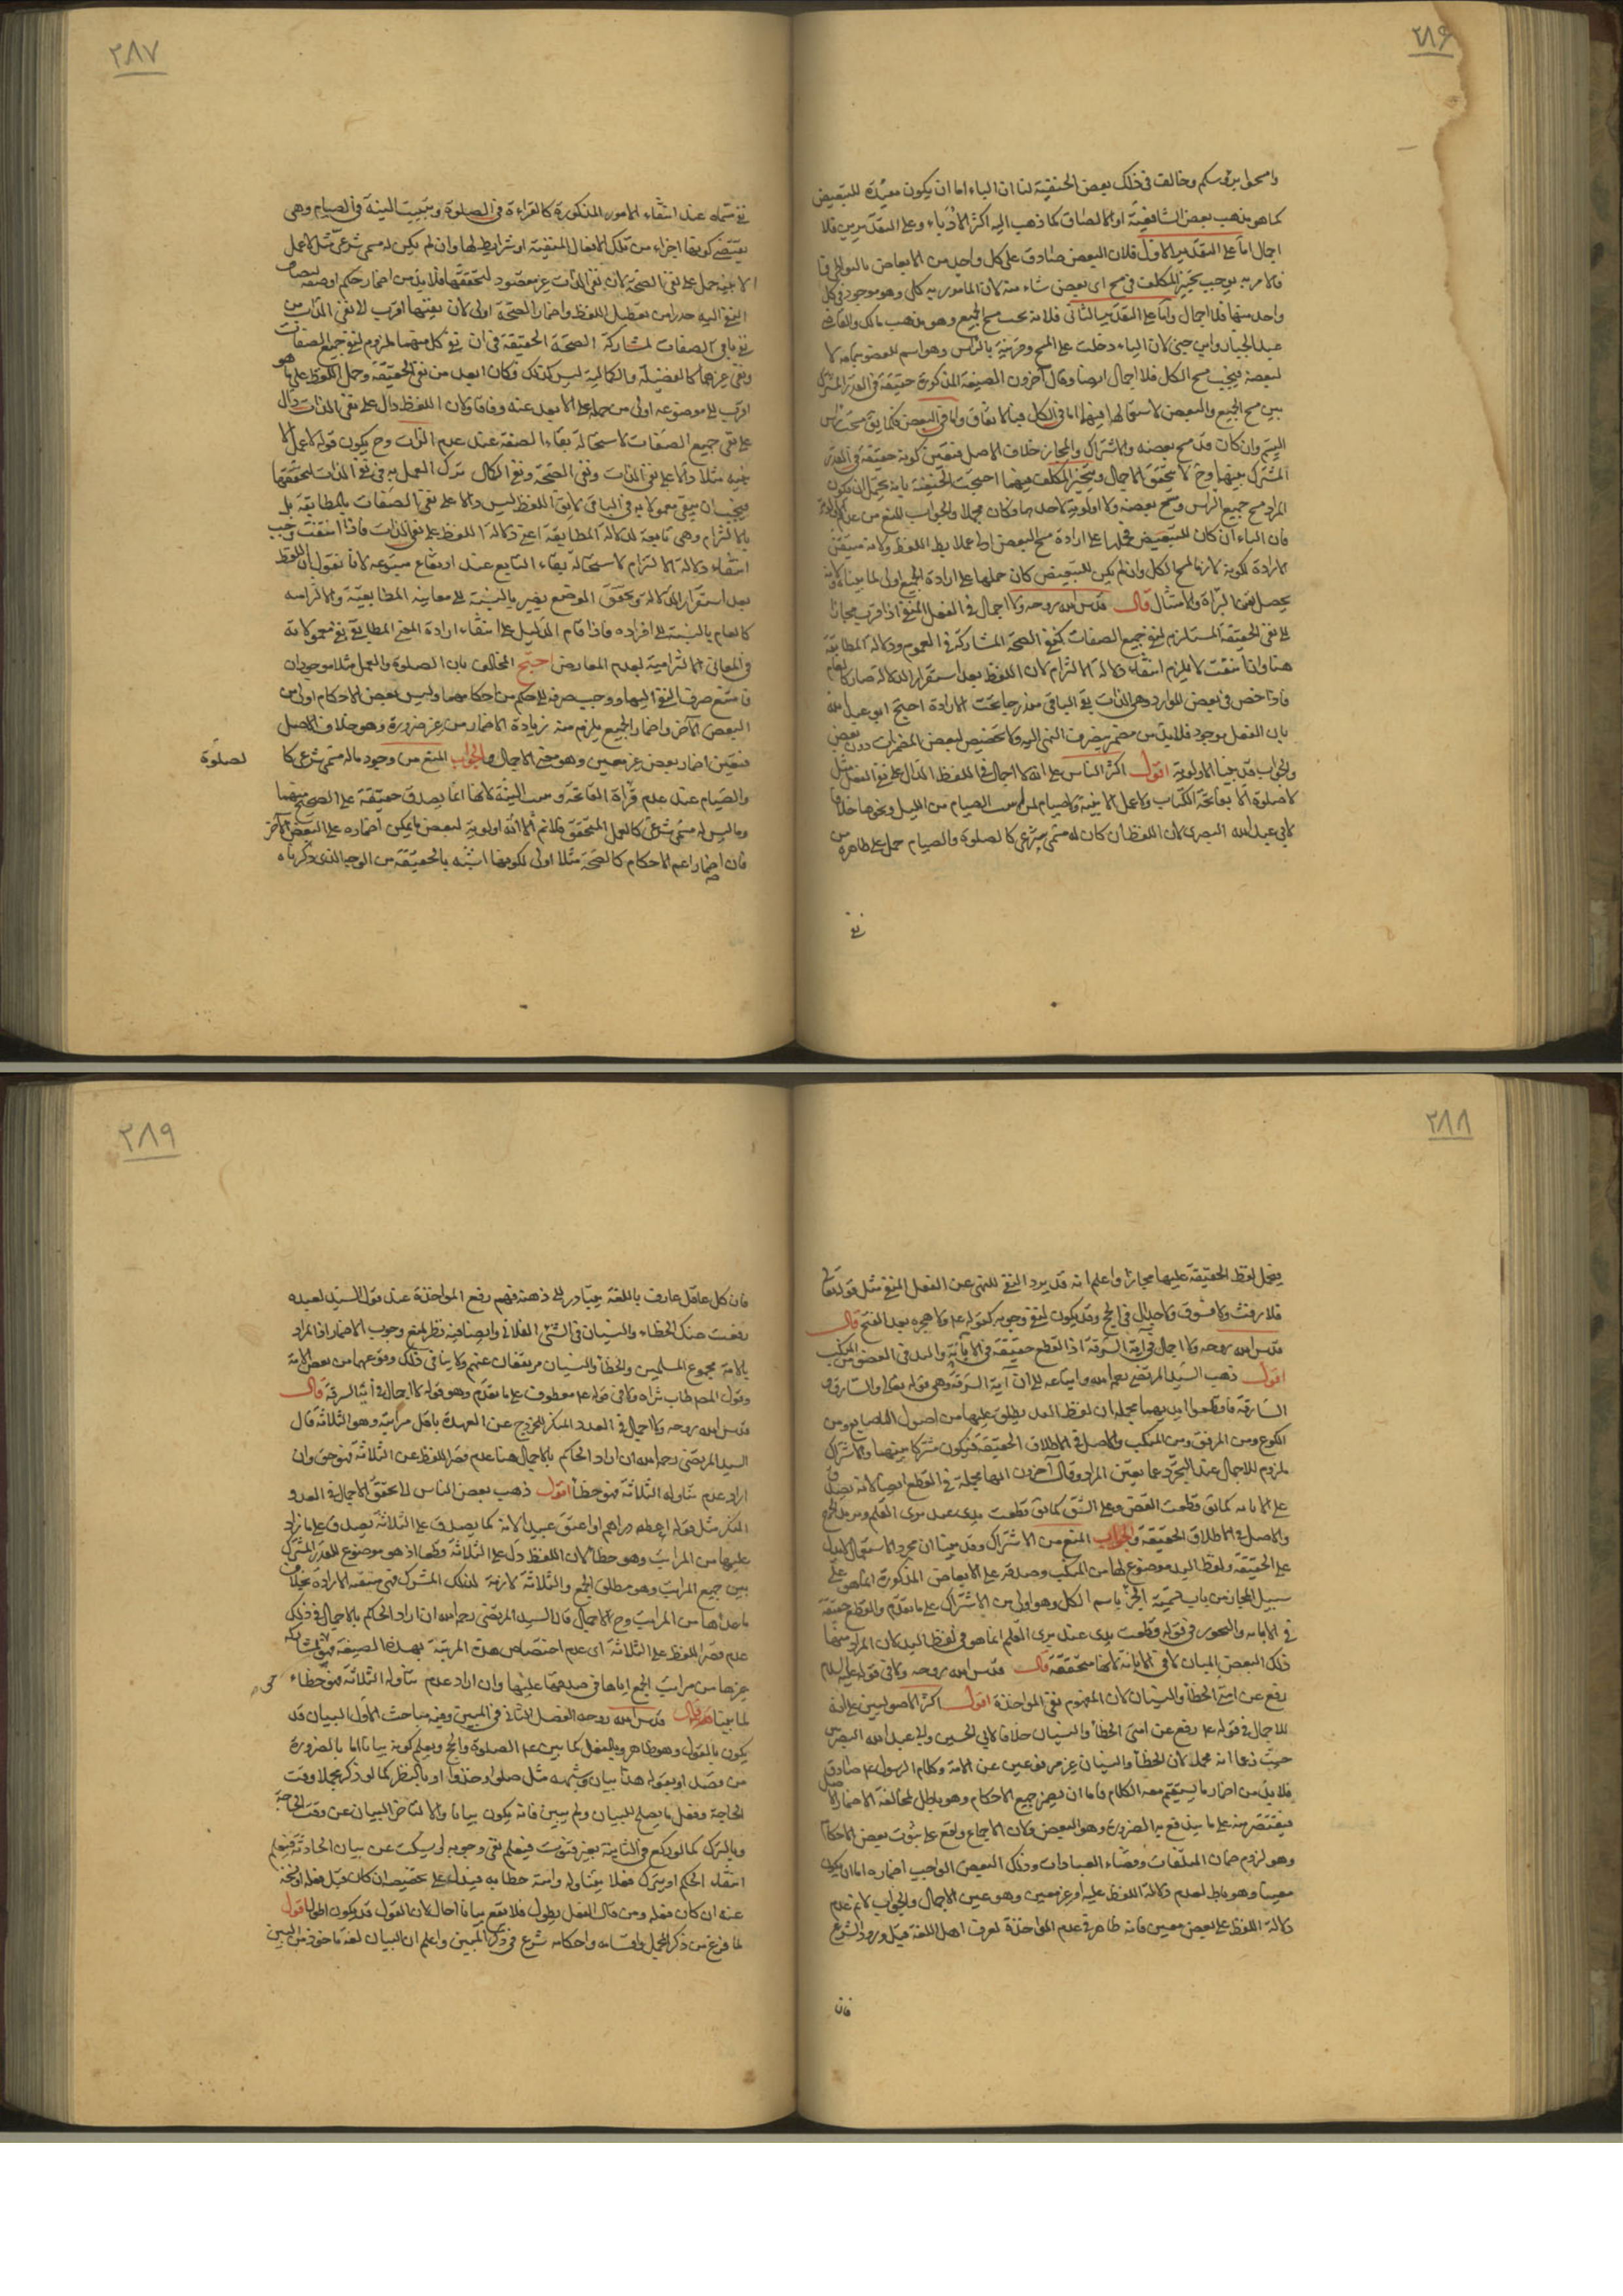 ٢٨٦
وامسحوا برؤسكم وخالف في ذلك بعض الحنفية لنا ان الباء اما ان يكون مفيدة للتبعيض
كما هو مذهب بعض الشافعية او للالصاق كما ذهب اليه اكثر الادباء وعلى التقديرين فلا
اجمال اما على التقدير الاول فلان البعض صادق على كل واحد من الابعاض بالتواطي
فالامر به يوجب تخير المكلف في مسح اي بعض شاء منه لان المامور به كلي وهو موجود في كل
واحد منها فلا اجمال واما على التقدير الثاني فلانه يجب مسح الجميع وهو مذهب مالك والقاضي
عبد الجبار وابن جني لان الباء دخلت على المسح وقرنته بالراس وهو اسم للعضو بتمامه لا
لبعضه فيجب مسح الكل فلا اجمال ايضا وقال آخرون الصيغة المذكورة حقيقة في القدر المشترك
بين مسح الجميع والبعض لاستعمالها فيهما اما في الكل فبالاتفاق واما في البعض فكما يق مسحت راس
اليتيم وان كان قد مسح بعضه والاشتراك والمجاز خلاف الاصل فتعين كونه حقيقة في القدر
المشترك بينهما وح لا يتحقق الاجمال ويتخير المكلف فيهما احتجت الحنفية بانه يحتمل ان يكون
المراد مسح جميع الراس ومسح بعضه ولا اولوية لاحدهما فكان مجملا والجواب المنع من عدم الاولوية
فان الباء ان كان للتبعيض فحملها على ارادة مسح البعض اولى عملا بظ اللفظ ولانه متيقن
الارادة لكونه لازما لمسح الكل وان لم يكن للتبعيض كان حملها على ارادة الجميع اولى لما بينا ولانه
يحصل يقين البراة والامتثال قال قدس الله روحه ولا اجمال في الفعل المنفي اذ اقرب مجازا
الى نفي الحقيقة المستلزم لنفي جميع الصفات كنفي الصحة المشاركة في العموم ودلالة المطابقة
هنا وان انتفت لا يلزم انتفاء دلالة الالتزام لان اللفظ بعد استقرار الدلالة صار كالعام
فاذا خص في بعض الموارد وهي الذات بقي الباقي مندرجا تحت الارادة احتج ابو عبد الله
بان الفعل موجود فلا بد من مضمر ينصرف النفي اليه ولا تخصيص لبعض المضمرات دون بعض
والجواب قد بينا الاولوية اقول اكثر الناس على انه لا اجمال في اللفظ الدال على نفي الفعل مثل
لا صلوة الا بفاتحة الكتاب ولا عمل الا بنية ولا صيام لمن لم يبيت الصيام من الليل ونحوها خلافا
لابي عبد الله البصري لان اللفظ ان كان له مسمى شرعي كالصلوة والصيام حمل على ظاهره من
نفي
٢٨٧
نفي مسماه عند انتفاء الامور المذكورة كالقراءة في الصلوة وتبييت النية في الصيام وهي
يقتضي كونها اجزاء من تلك الافعال المنفية او شرايط لها وان لم يكن له مسمى شرعي مثل لا عمل
الا بنية حمل على نفي الصحة لان نفي الذات غير مقصود لتحققها فلا بد من اضمار حكم او صفة لينصرف
النفي اليه حذرا من تعطيل اللفظ واضمار الصحة اولى لان نفيها اقرب الى نفي الذات من
نفي باقي الصفات لمشاركة الصحة الحقيقة في ان نفي كل منهما ملزوم لنفي جميع الصفات
ونفي غيرها كالفضيلة والكمالية ليس كذلك فكان ابعد من نفي الحقيقة وحمل اللفظ على ما هو
اقرب الى موضوعه اولى من حمله على الابعد عنه وفاقا ولان اللفظ دال على نفي الذات دال
على نفي جميع الصفات لاستحالة بقاء الصفة عند عدم الذات وح يكون قوله لا عمل الا
بنية مثلا دالا على نفي الذات ونفي الصحة ونفي الكمال ترك العمل به في نفي الذات لتحققها
فيجب ان يبقى معمولا به في الباقي لا يق اللفظ ليس دالا على نفي الصفات بالمطابقة بل
بالالتزام وهي تابعة لدلالة المطابقة اعني دلالة اللفظ على نفي الذات فاذا انتفت وجب
انتفاء دلالة الالتزام لاستحالة بقاء التابع عند ارتفاع متبوعه لانا نقول ان اللفظ
بعد استقرار الدلالة وتحقق الوضع يصير بالنسبة الى معانيه المطابقية والالتزامية
كالعام بالنسبة الى افراده فاذا قام الدليل على انتفاء ارادة المعنى المطابقي بقي معمولا به
في المعاني الالتزامية لعدم المعارض احتج المخالف بان الصلوة والعمل مثلا موجودان
فامتنع صرف النفي اليهما ووجب صرفه الى حكم من احكامهما وليس بعض الاحكام اولى من
البعض الآخر واضمار الجميع يلزم منه زيادة الاضمار من غير ضرورة وهو خلاف الاصل
فتعين اضمار بعض غير معين وهو معنى الاجمال والجواب المنع من وجود ماله مسمى شرعي كا
لصلوة
والصيام عند عدم قراءة الفاتحة وتبييت النية لانها انما يصدق حقيقة على الصحيح منهما
وما ليس له مسمى شرعي كالعمل المتحقق فلا نم الا انه اولوية لبعض ما يمكن اضماره على البعض الآخر
فان اضمار اعم الاحكام كالصحة مثلا اولى لكونها اشبه بالحقيقة من الوجه الذي ذكرناه
٢٨٨
فيحمل لفظ الحقيقة عليها مجازا واعلم انه قد يرد النفي للنهي عن الفعل المنفي مثل قوله تعالى
فلا رفث ولا فسوق ولا جدال في الحج وقد يكون لنفي وجوبه كقوله ع ولا هجرة بعد الفتح قال
قدس الله روحه ولا اجمال في آية السرقة اذ القطع حقيقة في الابانة واليد في العضو من المنكب
اقول ذهب السيد المرتضى رحمه الله واتباعه الى ان آية السرقة وهي قوله تعالى والسارق و
السارقة فاقطعوا ايديهما مجملة لان لفظ اليد يطلق عليها من اصول الاصابع ومن
الكوع ومن المرفق ومن المنكب والاصل في الاطلاق الحقيقة فيكون مشتركا بينها والاشتراك
ملزوم للاجمال عند التجرد عما يعين المراد وقال آخرون انها مجملة في القطع ايضا لانه يصدق
على الابانة كما يق قطعت الغصن وعلى الشق كما يق قطعت يدي عند بري القلم ومن يد الجرح
والاصل في الاطلاق الحقيقة والجواب المنع من الاشتراك وقد بينا ان مجرد الاستعمال لا يدل
على الحقيقة ولفظ اليد موضوع لها من المنكب وصدقه على الابعاض المذكورة انما هو على
سبيل المجاز من باب تسمية الجزء باسم الكل وهو اولى من الاشتراك على ما تقدم والقطع حقيقة
في الابانة والتجوز في قوله قطعت يدي عند بري القلم انما هو في لفظ اليد لان المراد منها
ذلك البعض المبان لا في الابانة لانها متحققة قال قدس الله روحه ولا في قوله عليه السلام
رفع عن امتي الخطأ والنسيان لان المفهوم نفي المؤاخذة اقول اكثر الاصوليين على انه
لا اجمال في قوله ع رفع عن امتي الخطأ والنسيان خلافا لابي الحسين وابي عبد الله البصريين
حيث زعما انه مجمل لان الخطأ والنسيان غير مرفوعين عن الامة وكلام الرسول ع صادق
فلا بد من اضمار ما يستقيم معه الكلام فاما ان يضمر جميع الاحكام وهو باطل لمخالفة الاضمار الاصل
فيقتصر منه على ما يندفع به الضرورة وهو البعض ولان الاجماع واقع على ثبوت بعض الاحكام
وهو لزوم ضمان المتلفات وقضاء العبادات وذلك البعض الواجب اضماره اما ان يكون
معينا وهو باطل لعدم دلالة اللفظ عليه او غير معين وهو عين الاجمال والجواب لا نم عدم
دلالة اللفظ على بعض معين فانه ظاهر في عدم المؤاخذة لعرف اهل اللغة قبل ورود الشرع
فان
٢٨٩
فان كل عاقل عارف باللغة يتبادر الى ذهنه فهم رفع المؤاخذة عند قول السيد لعبده
رفعت عنك الخطاء والنسيان في الشئ الفلاني وايضا فيه نظر لمنع وجوب الاضمار اذ المراد
بالامة مجموع المسلمين والخطأ والنسيان مرتفعان عنهم ولا ينافي ذلك وقوعهما من بعض الامة
وقول المص طاب ثراه ولا في قوله ع معطوف على ما تقدم وهو قوله لا اجمال في آية السرقة قال
قدس الله روحه ولا اجمال في العدد المنكر للخروج عن العهدة باقل مراتبه وهو الثلاثة قال
السيد المرتضى رحمه الله ان اراد الحاكم بالاجمال هنا عدم قصر اللفظ عن الثلاثة فهو حق وان
اراد عدم تناوله الثلاثة فهو خطأ اقول ذهب بعض الناس الى تحقق الاجمال في العدد
المنكر مثل قوله اعطه دراهم او اعتق عبيدا لانه كما يصدق على الثلاثة يصدق على ما زاد
عليها من المراتب وهو خطأ لان اللفظ دل على الثلاثة قطعا اذ هو موضوع للقدر المشترك
بين جميع المراتب وهو مطلق الجمع والثلاثة لازمة لذلك المشترك فهي متيقنة الارادة بخلاف
ما عداها من المراتب وح لا اجمال قال السيد المرتضى رحمه الله ان اراد الحاكم بالاجمال في ذلك
عدم قصر اللفظ على الثلاثة اي عدم اختصاص هذه المرتبة بهذه الصيغة فهو حق لمشاركة
غيرها من مراتب الجمع اياها في صدقها عليها وان اراد عدم تناوله الثلاثة فهو خطاء
لما بينا قال قدس الله روحه الفصل الثاني في المبين وفيه مباحث الاول البيان قد
يكون بالقول وهو ظاهر وبالفعل كما بين ع الصلوة والحج ويعلم كونه بيانا اما بالضرورة
من قصده او بقوله هذا بيان وشبهه مثل صلوا وخذوا او بالنظر كما لو ذكر مجملا وقت
الحاجة وفعل ما يصلح للبيان ولم يبين فانه يكون بيانا والا لتاخر البيان عن وقت الحاجة
وبالترك كما لو ركع في الثانية بغير قنوت فيعلم نفي وجوبه او يسكت عن بيان الحادثة فيعلم
انتفاء الحكم او يترك فعلا يتناوله وامته خطابه فيدل على تخصيصه ان كان قبل فعله او نسخه
عنه ان كان بعده ومن قال الفعل يطول فلا يقع بيانا احال لان القول قد يكون اطول اقول
لما فرغ من ذكر المجمل واقسامه واحكامه شرع في ذكر المبين واعلم ان البيان لغة ماخوذ من البين